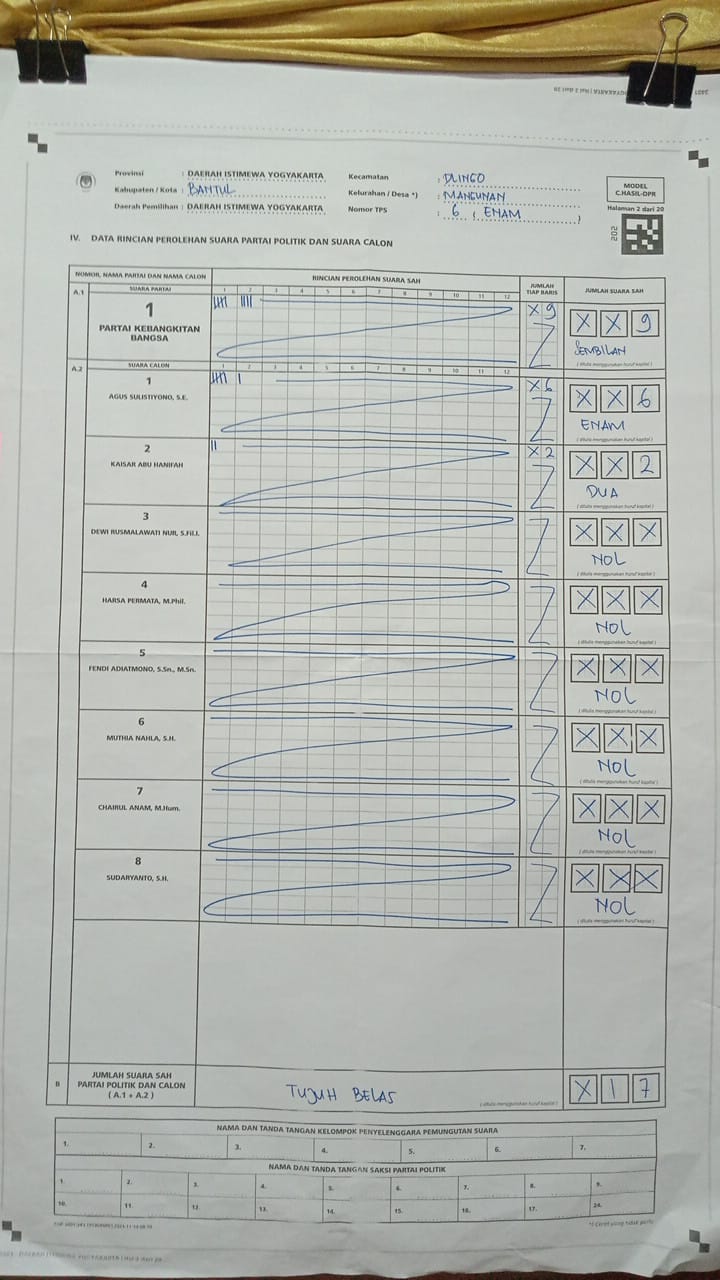 Provinsi : DAERAH ISTIMEWA YOGYAKARTA
Kabupaten / Kota : BANTUL
Daerah Pemilihan : DAERAH ISTIMEWA YOGYAKARTA
Kecamatan : DLINGO
Kelurahan / Desa *) : MANGUNAN
Nomor TPS : 6 ( ENAM )
MODEL
C.HASIL-DPR
Halaman 2 dari 20
202
IV. DATA RINCIAN PEROLEHAN SUARA PARTAI POLITIK DAN SUARA CALON
NOMOR, NAMA PARTAI DAN NAMA CALON
RINCIAN PEROLEHAN SUARA SAH
JUMLAH TIAP BARIS
JUMLAH SUARA SAH
A.1 SUARA PARTAI
1 2 3 4 5 6 7 8 9 10 11 12
1
PARTAI KEBANGKITAN
BANGSA
X 9
X X 9
SEMBILAN
( ditulis menggunakan huruf kapital )
A.2 SUARA CALON
1 2 3 4 5 6 7 8 9 10 11 12
1
AGUS SULISTIYONO, S.E.
X 6
X X 6
ENAM
( ditulis menggunakan huruf kapital )
2
KAISAR ABU HANIFAH
X 2
X X 2
DUA
( ditulis menggunakan huruf kapital )
3
DEWI RUSMALAWATI NUR, S.Fil.I.
X X X
NOL
( ditulis menggunakan huruf kapital )
4
HARSA PERMATA, M.Phil.
X X X
NOL
( ditulis menggunakan huruf kapital )
5
FENDI ADIATMONO, S.Sn., M.Sn.
X X X
NOL
( ditulis menggunakan huruf kapital )
6
MUTHIA NAHLA, S.H.
X X X
NOL
( ditulis menggunakan huruf kapital )
7
CHAIRUL ANAM, M.Hum.
X X X
NOL
( ditulis menggunakan huruf kapital )
8
SUDARYANTO, S.H.
X X X
NOL
( ditulis menggunakan huruf kapital )
B JUMLAH SUARA SAH
PARTAI POLITIK DAN CALON
( A.1 + A.2 )
TUJUH BELAS
( ditulis menggunakan huruf kapital )
X 1 7
NAMA DAN TANDA TANGAN KELOMPOK PENYELENGGARA PEMUNGUTAN SUARA
1. 2. 3. 4. 5. 6. 7.
NAMA DAN TANDA TANGAN SAKSI PARTAI POLITIK
1. 2. 3. 4. 5. 6. 7. 8. 9.
10. 11. 12. 13. 14. 15. 16. 17. 24.
*) Coret yang tidak perlu